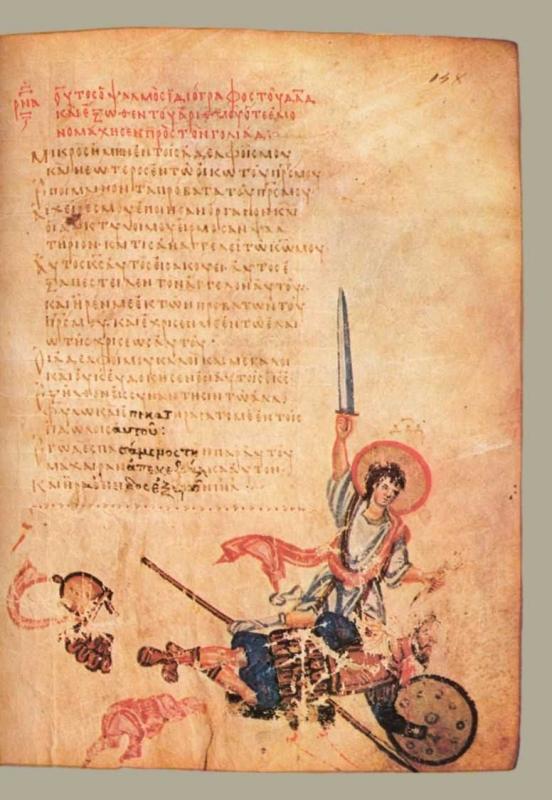 ΡΝΑ
οὗτος ὁ ψαλμὸς ἰδιόγραφος τοῦ δᾱδ
καὶ ἔξωθεν τοῦ ἀριθμοῦ ὅτε ἐμο
νομάχησεν πρὸς τὸν γολιάδ:
Μικρὸς ἤμην ἐν τοῖς ἀδελφοῖς μου
καὶ νεώτερος ἐν τῶ οἴκω τοῦ πρ̅ς μου
ἐποίμαινον τὰ πρόβατα τοῦ πρ̅ς μου
Αἱ χεῖρες μου ἐποίησαν ὄργανον καὶ
οἱ δάκτυλοί μου ἥρμοσαν ψαλ
τήριον· καὶ τίς ἀναγγελεῖ τῶ κ̅ω μου
Αὐτὸς κ̅ς αὐτὸς εἰσακούει αὐτὸς ἐ
ξαπέστειλεν τὸν ἄγγελον αὐτοῦ·
καὶ ἦρέν με ἐκ τῶν προβάτων τοῦ
πρ̅ς μου· καὶ ἔχρισέν με ἐν τῶ ἐλαί
ω τῆς χρίσεως αὐτοῦ·
Οἱ ἀδελφοί μου καλοὶ καὶ μεγάλοι
καὶ οὐκ εὐδόκησεν ἐν αὐτοῖς ὁ κ̅ς·
Ἐξῆλθον εἰς συνάντησιν τῶ ἀλλο
φύλω καὶ ἐπικατηράσατό με ἐν τοῖς
εἰδώλοις αὐτοῦ:
Ἐγὼ δὲ σπασάμενος τὴν παρ αὐτοῦ
μάχαιραν ἀπεκεφάλισα αὐτόν·
Καὶ ἦρα ὄνειδος ἐξ